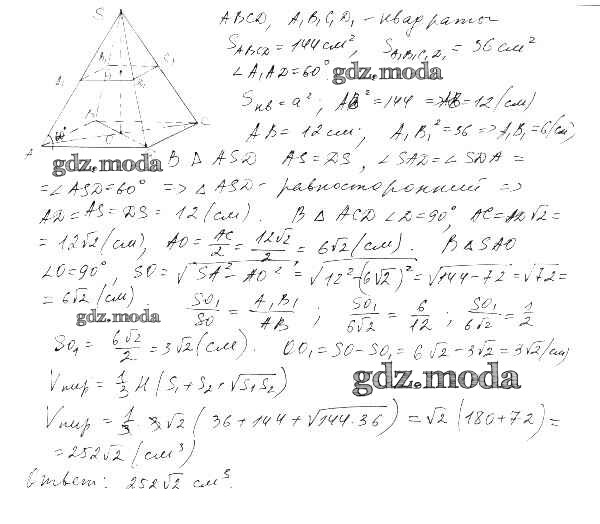 ABCD, A₁B₁C₁D₁ - квадраты
S_ABCD = 144 см², S_A₁B₁C₁D₁ = 36 см²
∠A₁AD = 60°
gdz.moda
S_кв = a²; AB² = 144 => AB = 12 (см)
AB = 12 см; A₁B₁² = 36 => A₁B₁ = 6 (см)
S
B₁
C₁
A₁
D₁
B
C
60°
A
O
gdz.moda
В △ ASD AS = DS, ∠SAD = ∠SDA =
= ∠ASD = 60° => △ASD - равносторонний =>
AD = AS = DS = 12 (см). В △ ACD ∠D = 90°, AC = 12√2 =
= 12√2 (см), AO = AC/2 = 12√2/2 = 6√2 (см). В △SAO
∠O = 90°, SO = √(SA² - AO²) = √(12² - (6√2)²) = √(144 - 72) = √72 =
= 6√2 (см). SO₁/SO = A₁B₁/AB ; SO₁/6√2 = 6/12 ; SO₁/6√2 = 1/2
gdz.moda
SO₁ = 6√2/2 = 3√2 (см). OO₁ = SO - SO₁ = 6√2 - 3√2 = 3√2 (см)
gdz.moda
V пир = 1/3 H (S₁ + S₂ + √(S₁S₂))
V пир = 1/3 · 3√2 (36 + 144 + √(144·36)) = √2 (180 + 72) =
= 252√2 (см³)
Ответ: 252√2 см³.